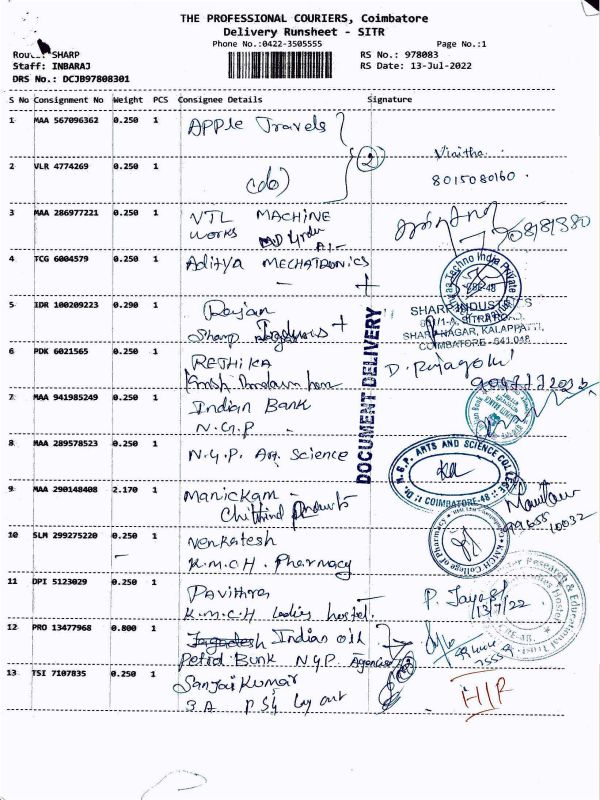 THE PROFESSIONAL COURIERS, Coimbatore
Delivery Runsheet - SITR
Phone No.:0422-3505555 Page No.:1
Route: SHARP RS No.: 978083
Staff: INBARAJ RS Date: 13-Jul-2022
DRS No.: DCJB97808301
S No Consignment No Weight PCS Consignee Details Signature
1 MAA 567096362 0.250 1 APPle Travels
2
Vinitha.
2 VLR 4774269 0.250 1 (do) 8015080160.
3 MAA 286977221 0.250 1 VTL MACHINE
WORKS
4 TCG 6004579 0.250 1 Aditya MECHATRONICS
5 IDR 100209223 0.290 1 Rajan
Sharp
SHARP INDUSTRIES
SHARP NAGAR, KALAPPATTI,
COIMBATORE - 641 048
6 PDK 6021565 0.250 1 RETHIKA
DOCUMENT DELIVERY
7 MAA 941985249 0.250 1 Indian Bank
N.G.P.
8 MAA 289578523 0.250 1 N.G.P. Art Science
Dr. N.G.P. ARTS AND SCIENCE COLLEGE
COIMBATORE-48
9 MAA 290148408 2.170 1 Manickam
10 SLM 299275220 0.250 1 Venkatesh
K.M.C.H. Pharmacy
KMCH College of Pharmacy
11 DPI 5123029 0.250 1 Pavithra
K.M.C.H Ladies hostel.
13/7/22.
12 PRO 13477968 0.800 1 Indian Oil
Petrol Bunk N.G.P.
13 TSI 7107835 0.250 1 Sanjai Kumar
3 A PSG Lay out
H/R